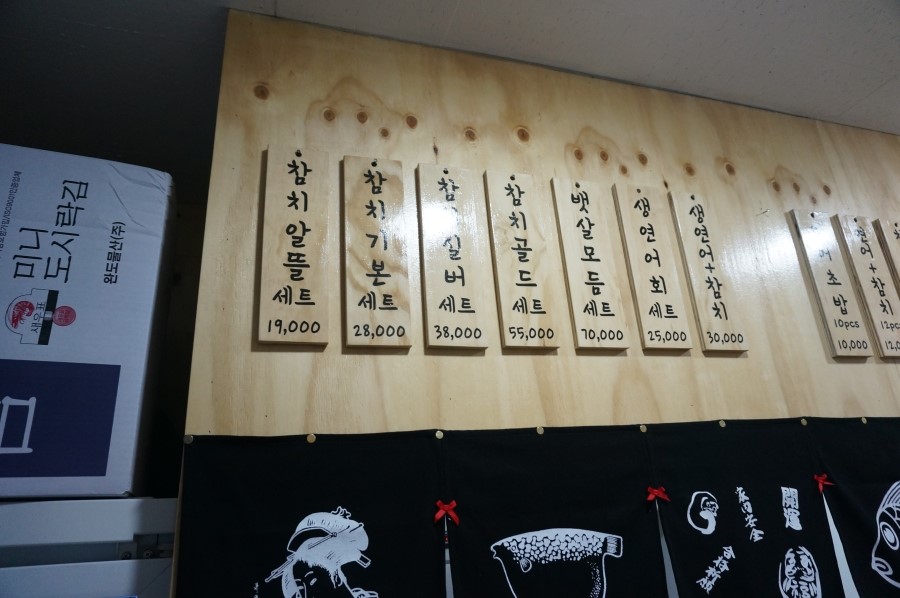 미니
도시락김
완도물산(주)
새우표
참치알뜰
세트
19,000
참치기본
세트
28,000
참치실버
세트
38,000
참치골드
세트
55,000
뱃살모듬
세트
70,000
생연어회
세트
25,000
생연어+참치
30,000
초밥
10pcs
10,000
연어+참치